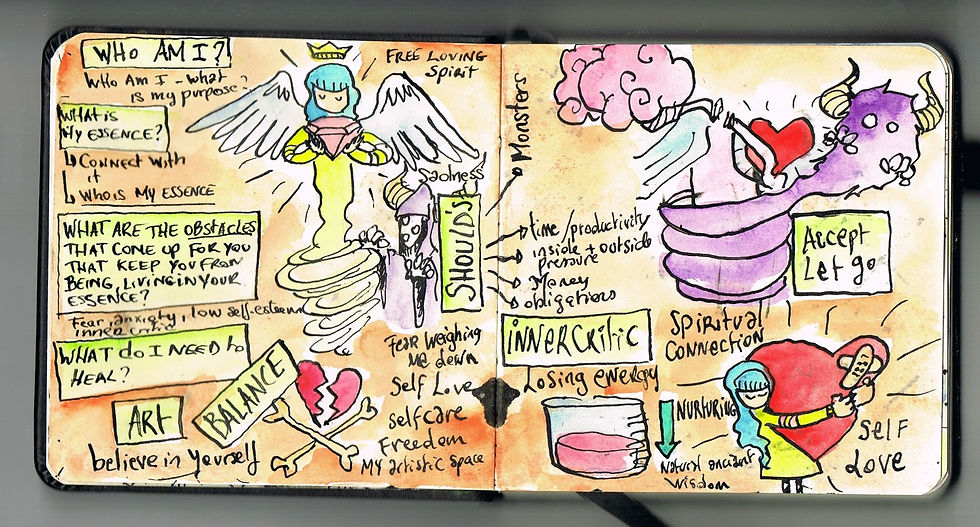 WHO AM I?
WHO AM I - what
is my purpose?
What is
My ESSENCE?
Connect with
it
Who is My ESSENCE
WHAT ARE THE OBSTACLES
THAT COME UP FOR YOU
THAT KEEP YOU FROM
BEING, LIVING IN YOUR
ESSENCE?
Fear, anxiety, low self-esteem
inner critic
WHAT do I NEED to
HEAL?
ART
BALANCE
believe in yourself
FREE LOVING
Spirit
Sadness
SHOULDS
Fear Weighing
Me down
Self Love
selfcare
Freedom
My artistic space
Monsters
time/productivity
inside + outside
pressure
Money
obligations
iNNER CRitiC
Losing energy
Accept
Let go
SPiRitual
Connection
NURTURING
Natural ancient
Wisdom
Self
Love